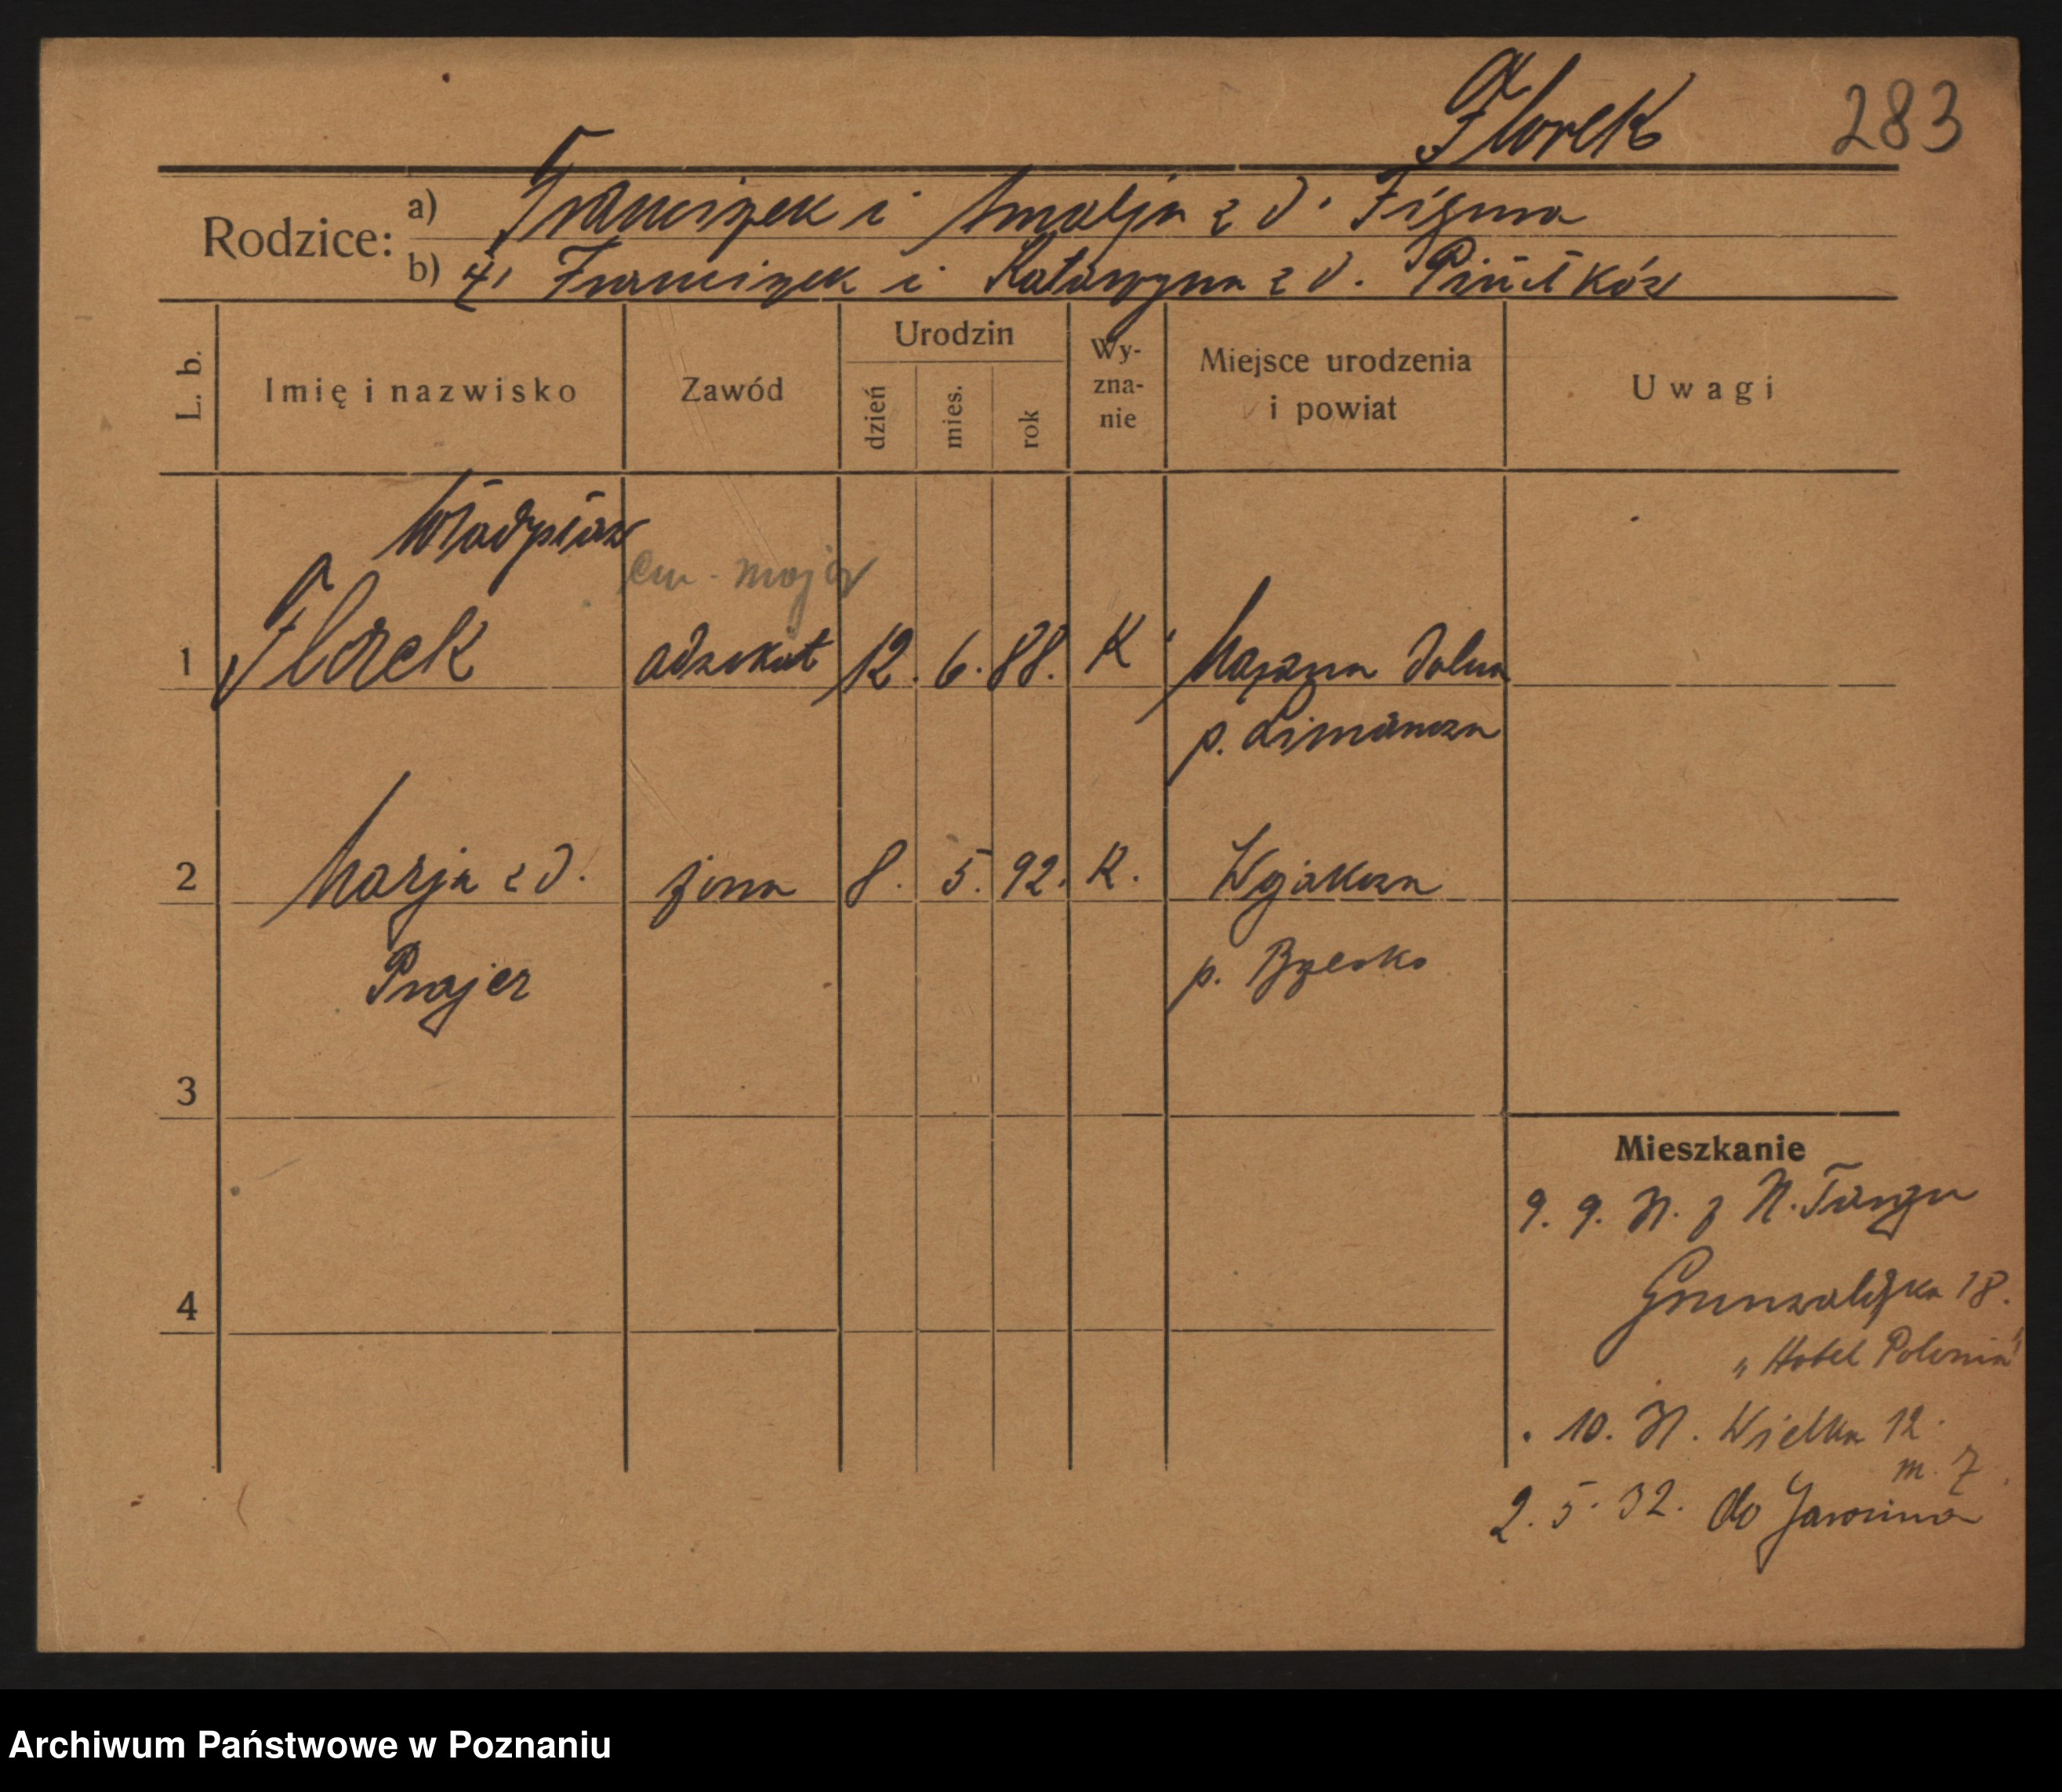 Florek 283
Rodzice: a) Franciszek i Amalja z d. Figura
b) ż. Franciszek i Katarzyna z d.
L. b. Imię i nazwisko Zawód Urodzin Wy-zna-nie Miejsce urodzenia i powiat Uwagi
dzień mies. rok
Władysław
em. major
1 Florek adwokat 12. 6. 88. K Mszana dolna
p. Limanowa
2 Marja z d. żona 8. 5. 92. K.
Prajer p. Brzesko
3
Mieszkanie
9. 9. 31. z N. Targu
4 Grunwaldzka 18.
"Hotel Polonia"
. 10. 31. Wielka 12
m. 7.
2. 5. 32. do Jarocina
Archiwum Państwowe w Poznaniu